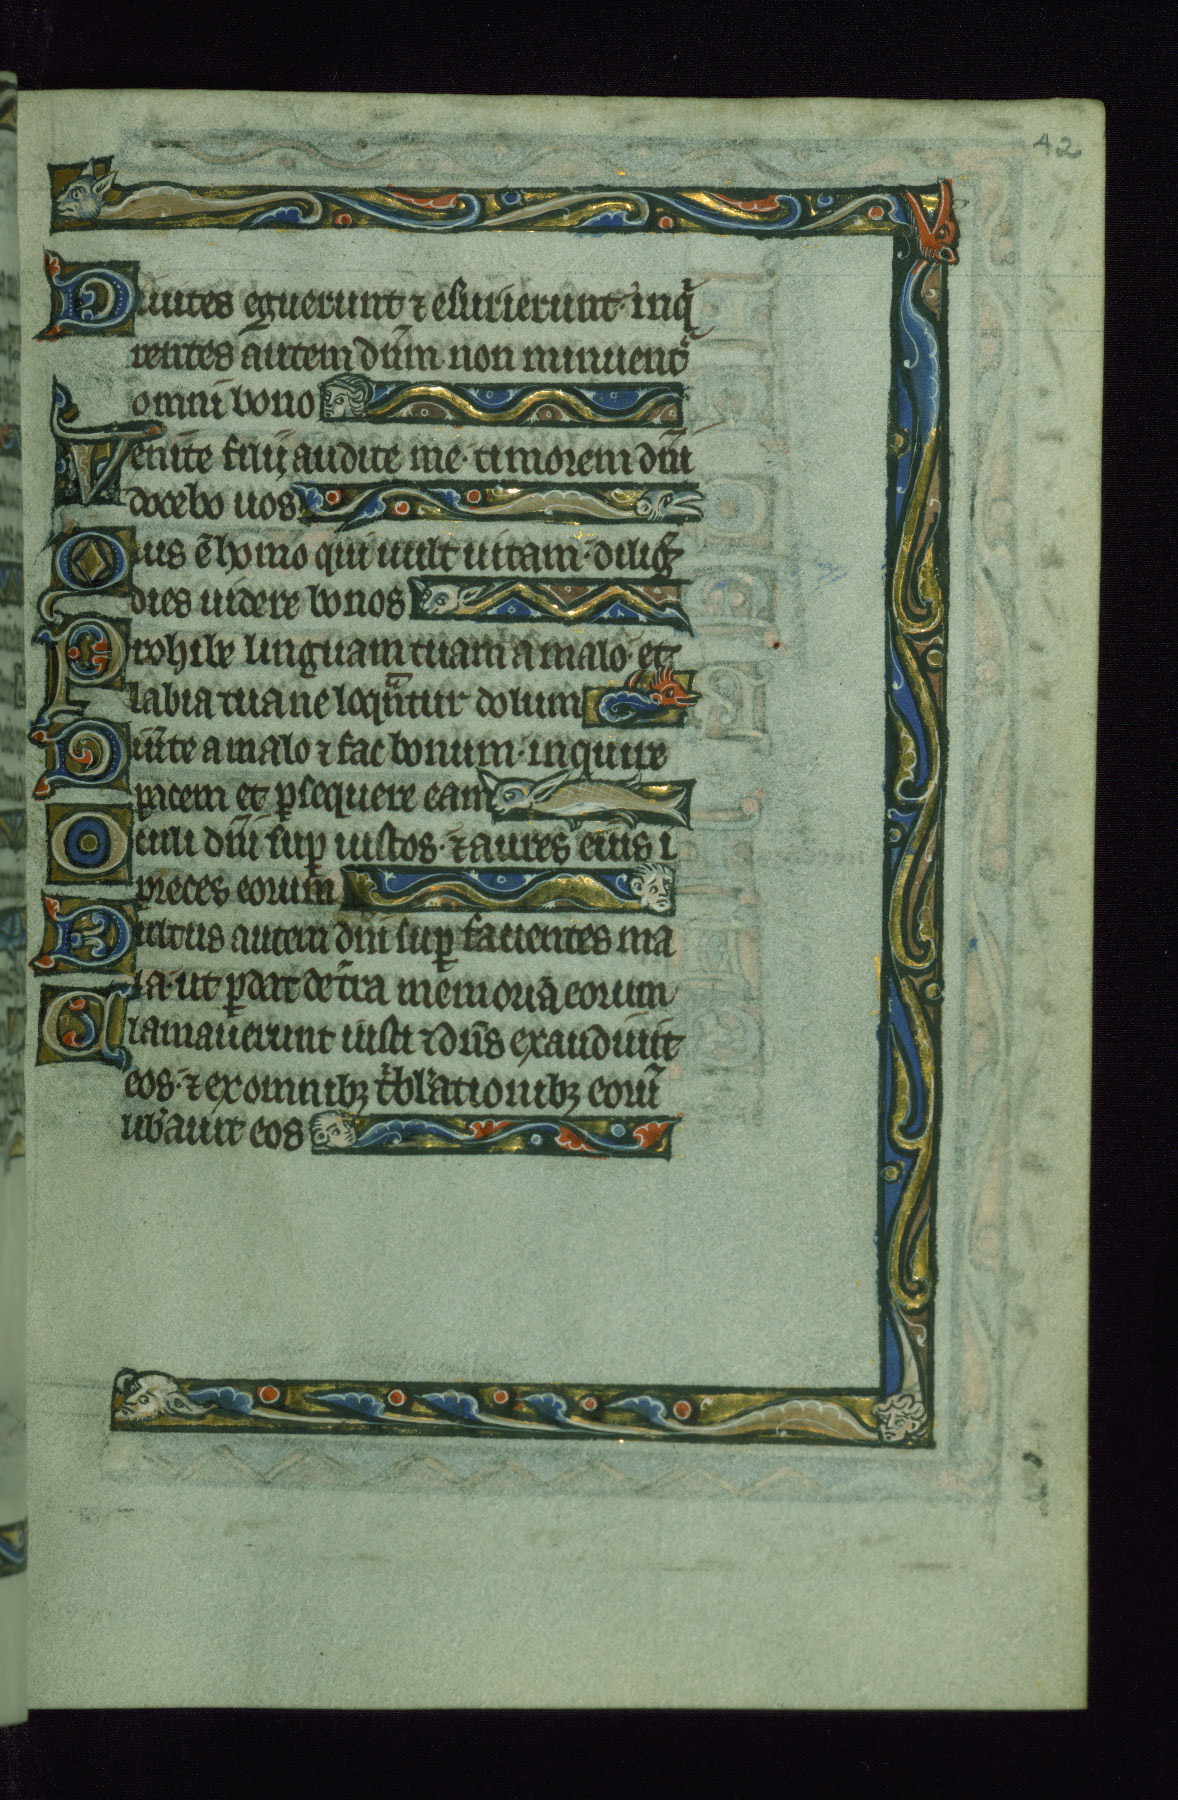 42
Diuites eguerunt ⁊ esurierunt· inq̃
rentes autem dñm non minuent᷑
omni bono
Venite filij audite me· timorem dñi
docebo uos
Quis ē homo qui uult uitam· diligit
dies uidere bonos
Prohibe linguam tuam a malo· et
labia tua ne loqñtur dolum
Diũte a malo ⁊ fac bonum· inquire
pacem et ꝑsequere eam
Oculi dñi suꝑ iustos· ⁊ aures eius ī
preces eorum
Uultus autem dñi suꝑ facientes ma
la· ut ꝑdat de t̃ra memoriã eorum
Clamauerunt iusti ⁊ dñs exaudiuit
eos· ⁊ ex omnibꝫ t̾bl̾ationibꝫ eorũ
lib̾auit eos